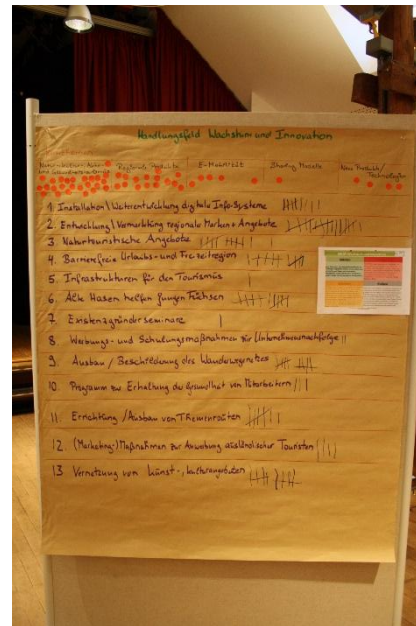 Handlungsfeld Wachstum und Innovation
Regionale Produkte
E-Mobilität
Sharing Modelle
Neue Produkte/
Technologien
1. Installation/Weiterentwicklung digitale Info-Systeme
2. Entwicklung/Vermarktung regionale Marken + Angebote
3. Naturtouristische Angebote
4. Barrierefreie Urlaubs- und Freizeitregion
5. Infrastrukturen für den Tourismus
6. Alte Hasen helfen jungen Füchsen
7. Existenzgründerseminare
8. Werbungs- und Schulungsmaßnahmen für Unternehmensnachfolge
9. Ausbau / Beschilderung des Wanderwegnetzes
10. Programm zur Erhaltung der Gesundheit von Mitarbeitern
11. Errichtung / Ausbau von Themenrouten
12. (Marketing-) Maßnahmen zur Anwerbung ausländischer Touristen
13 Vernetzung von Kunst-, Kulturangeboten